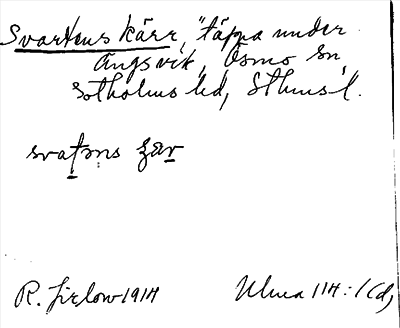 Svartens kärr, "täppa under
Ängsvik, Ösmo sn,
Sotholms hd, Sthms l.
svatəns
R. Jirlow 1914
Ulma 114:1(d)